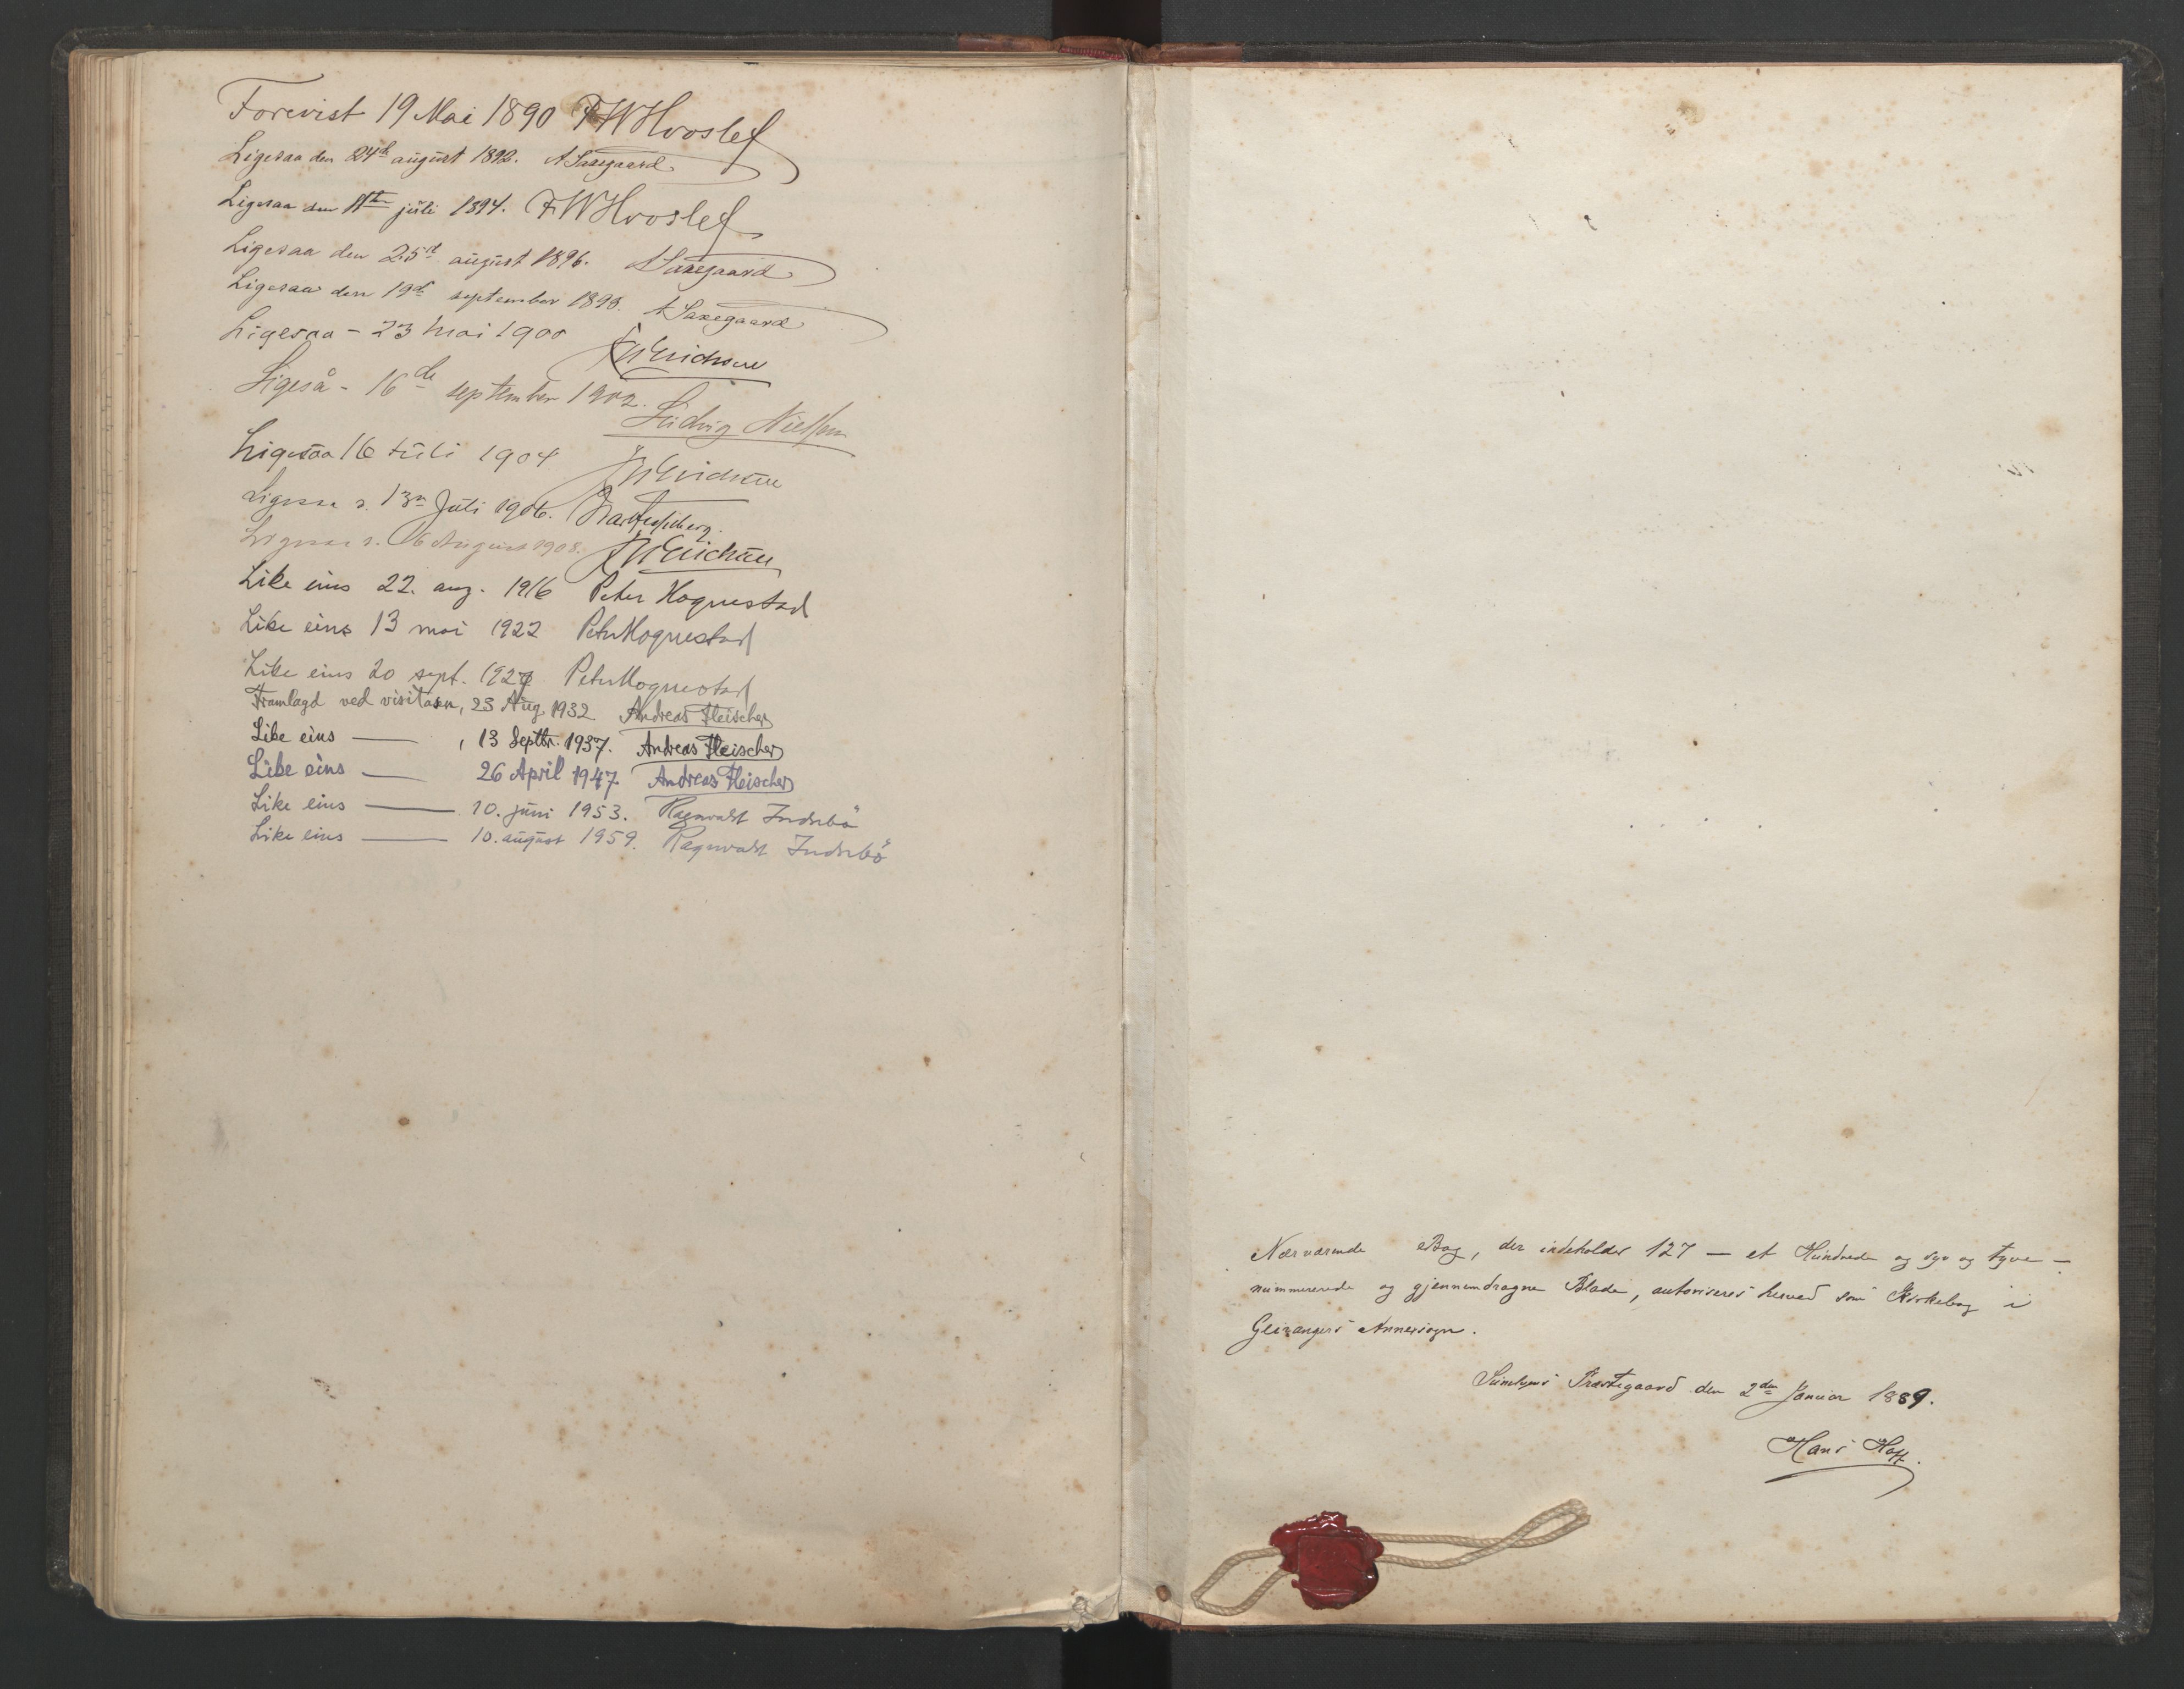 Forevist 19 Mai 1890 FWHvoslef
Ligesaa den 24d august 1892. A Saxegaard
Ligesaa den 11te juli 1894. FWHvoslef
Ligesaa den 25d august 1896. A Saxegaard
Ligesaa den 19d september 1898. A Saxegaard
Ligesaa - 23 Mai 1900 JWErichsen
Ligeså - 16de september 1902. Ludvig Nielsen
Ligesaa 16 Juli 1904 JWErichsen
Ligesaa d. 13n Juli 1906.
Ligesaa d. 6 August 1908. JWErichsen
Like eins 22. aug. 1916 Peter Hognestad
Like eins 13 mai 1922 Peter Hognestad
Like eins 20 sept. 1927 Peter Hognestad
Framlagd ved visitasen, 23 Aug 1932 Andreas Fleischer
Like eins — , 13 Septbr. 1937. Andreas Fleischer
Like eins — 26 April 1947 Andreas Fleischer
Like eins — 10. juni 1953. Ragnvald Indrebö
Like eins — 10. august 1959. Ragnvald Indrebö
Nærværende Bog, der indeholder 127 — et Hundrede og syv og tyve —
nummererede og gjennemdragne Blade, autoriseres herved som Kirkebog i
Geirangers Annexsogn.
Sunelvens Præstegaard den 2den Januar 1889.
Hans Hoff.